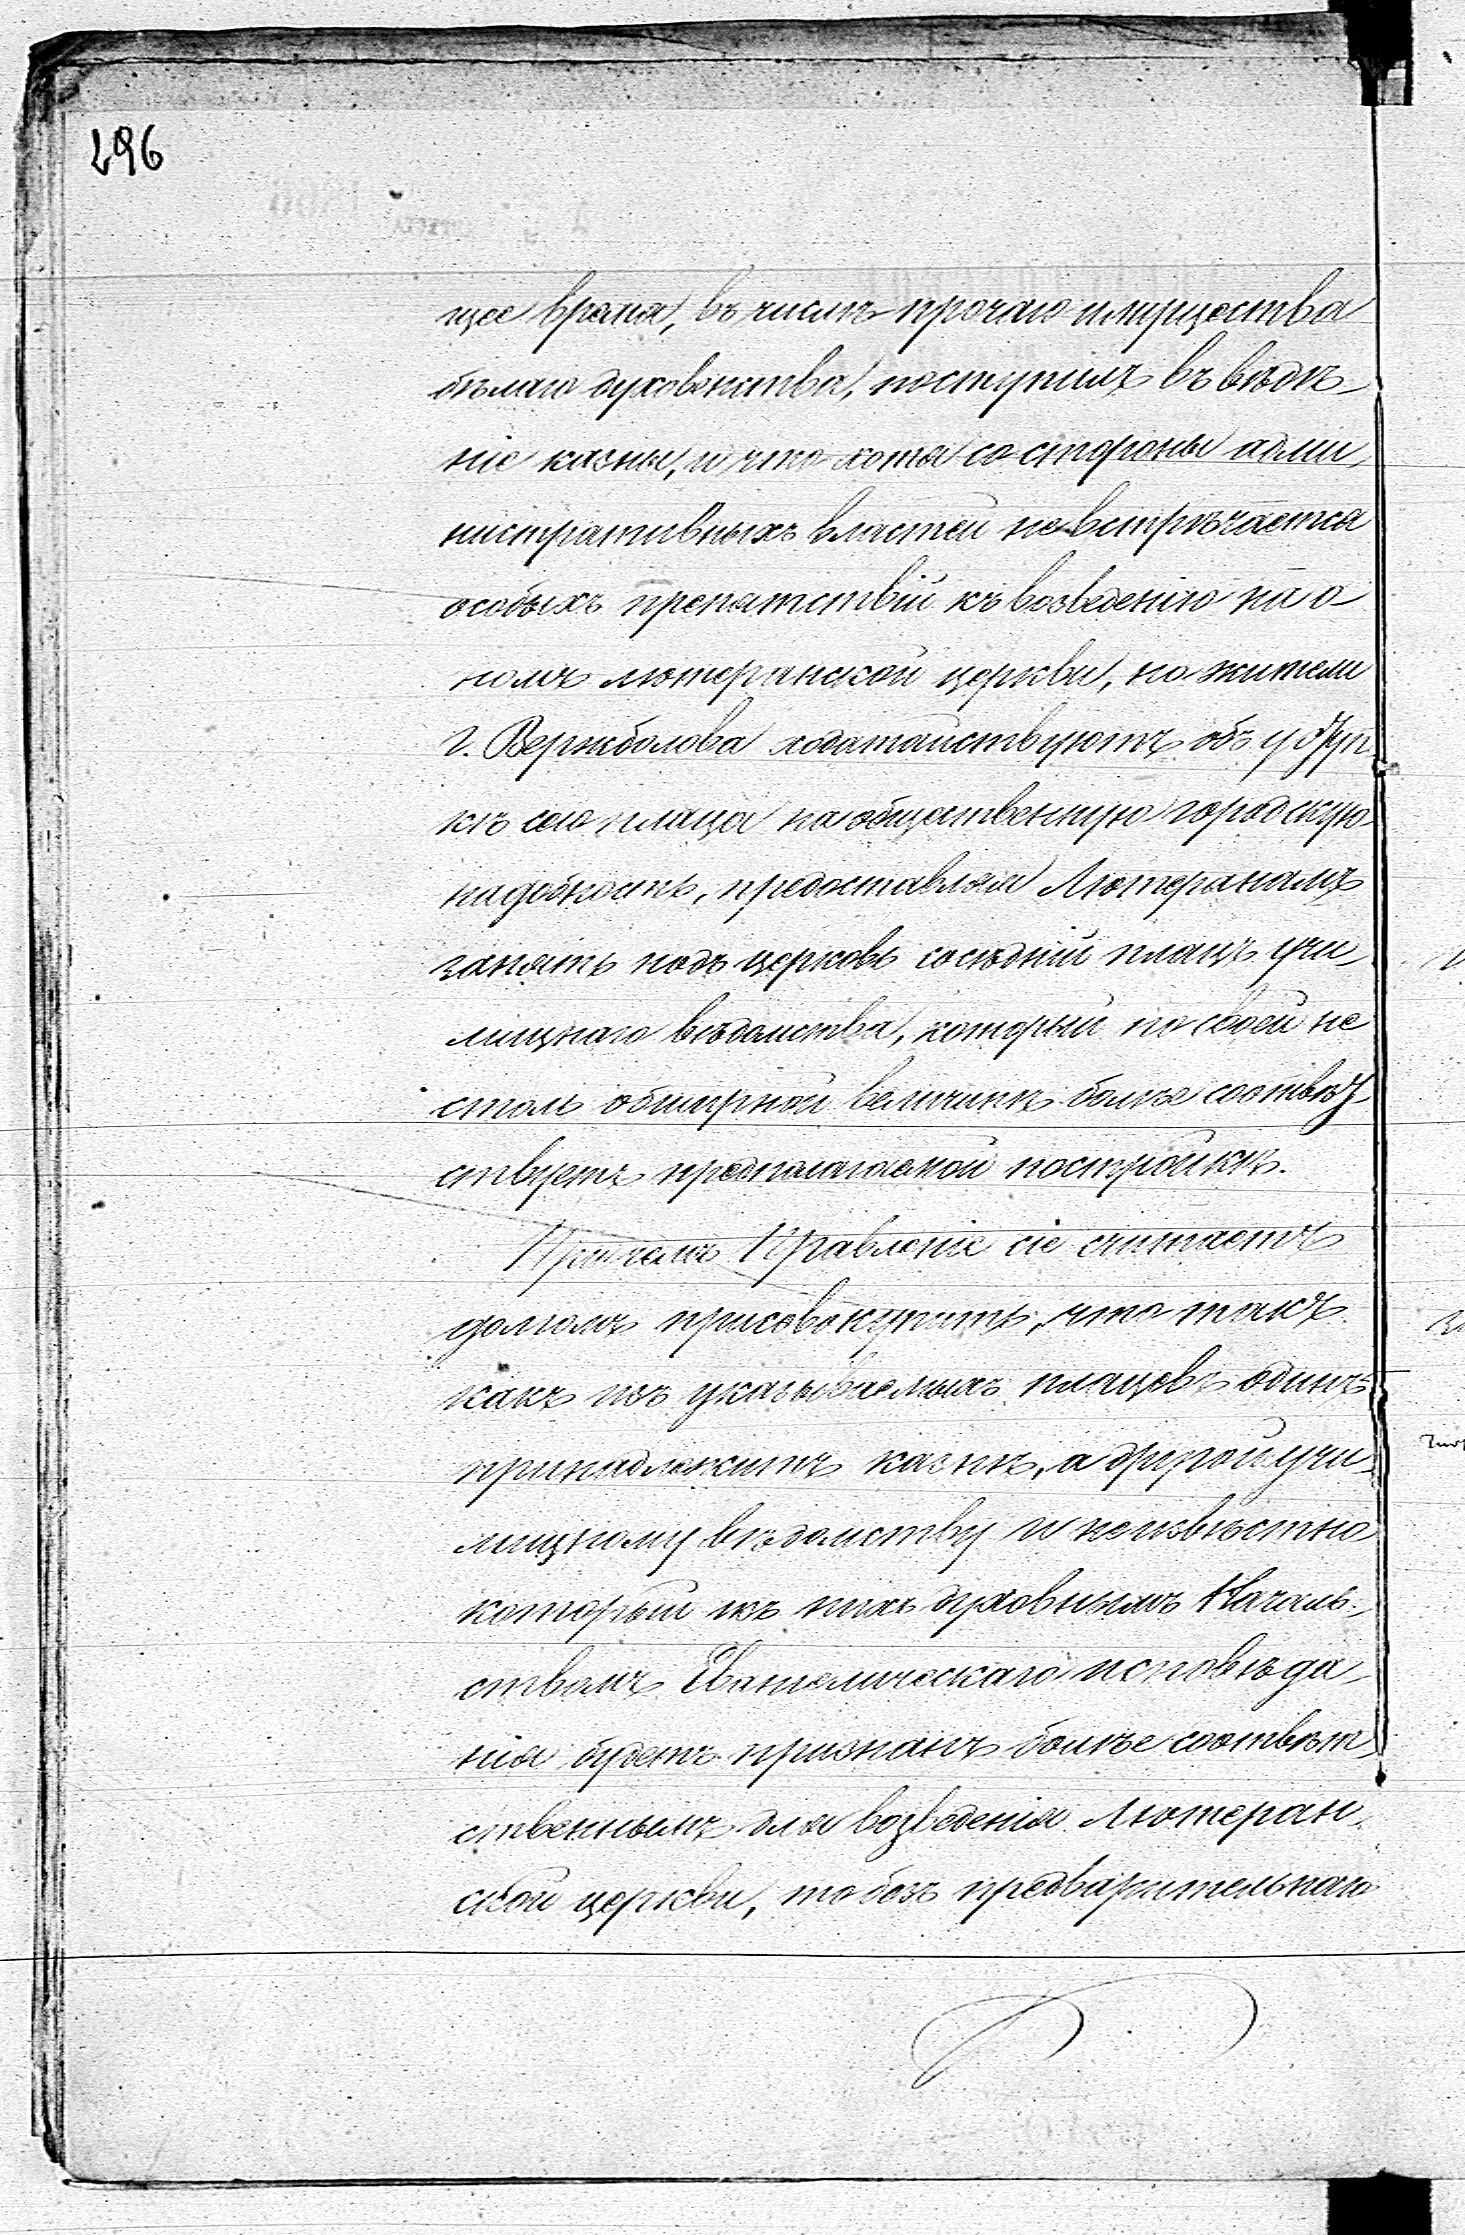 296
щее время, въ числѣ прочаго имущества
бѣлаго духовенства, поступилъ въ вѣдѣ-
ніе казны, и что хотя со стороны адми-
нистративныхъ властей не встрѣчается
особыхъ препятствій къ возведенію на о-
номъ лютеранской церкви, но жители
г. Вержболова ходатайствуютъ объ уступ-
кѣ сего плаца на общественную городскую
надобность, предоставляя Лютеранамъ
занять подъ церковь сосѣдній плацъ учи-
лищнаго вѣдомства, который по своей не
столь обширной величинѣ болѣе соотвѣт-
ствуетъ предполагаемой постройкѣ.
Причемъ Правленіе сіе считаетъ
долгомъ присовокупить, что такъ
какъ изъ указываемыхъ плацовъ одинъ
принадлежитъ казнѣ, а другой учи-
лищному вѣдомству и неизвѣстно
который изъ нихъ духовнымъ Началь-
ствомъ Евангелическаго исповѣда-
нія будетъ признанъ болѣе соотвѣт-
ственнымъ для возведенія Лютеран-
ской церкви, то безъ предварительнаго